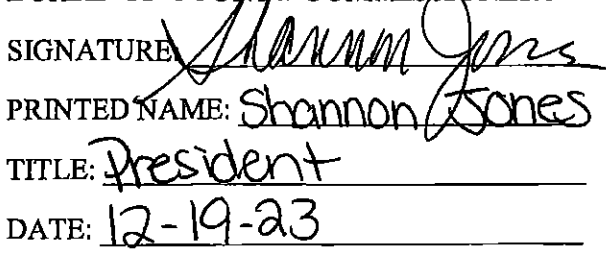 SIGNATURE: Shannon Jones
PRINTED NAME: Shannon Jones
TITLE: President
DATE: 12-19-23